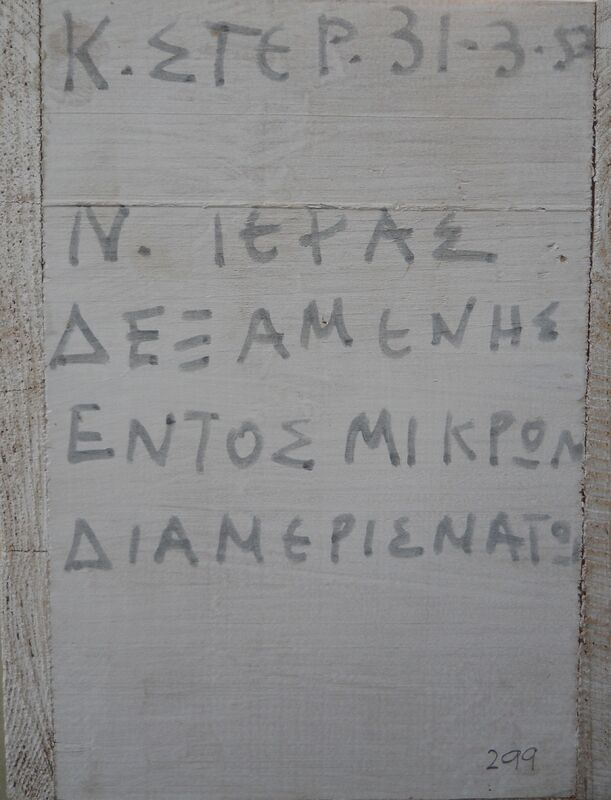 Κ. ΣΤΕΡ. 31-3-57
Ν. ΙΕΡΑΣ
ΔΕΞΑΜΕΝΗΣ
ΕΝΤΟΣ ΜΙΚΡΩΝ
ΔΙΑΜΕΡΙΣΜΑΤΩ
299